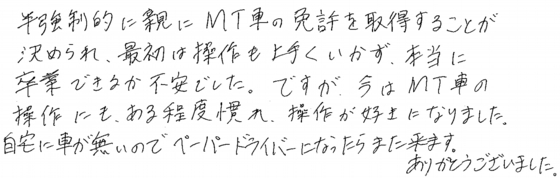 半強制的に親にMT車の免許を取得することが
決められ、最初は操作も上手くいかず、本当に
卒業できるか不安でした。ですが、今はMT車の
操作にも、ある程度慣れ、操作が好きになりました。
自宅に車が無いのでペーパードライバーになったらまた来ます。
ありがとうございました。